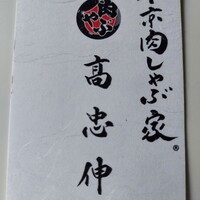 京肉しゃぶ家®
高忠伸